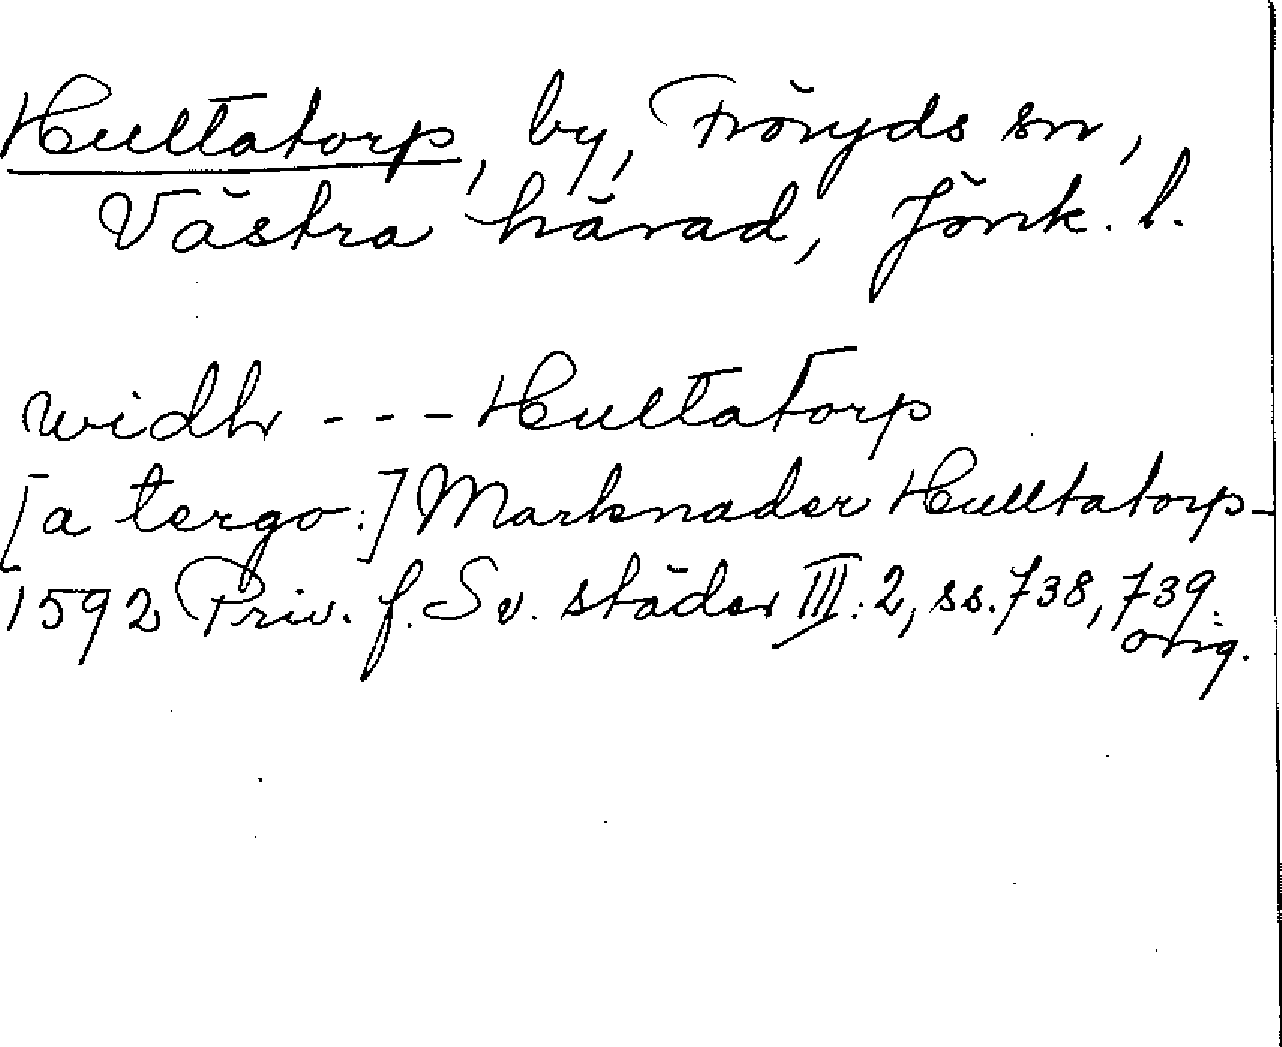 Hultatorp, by, Fröryds sn,
Västra härad, Jönk. l.
widh --- Hultatorp
[a tergo:] Marknader Hulltatorp-
1592 Priv. f. Sv. städer III:2, ss. 738, 739.
orig.